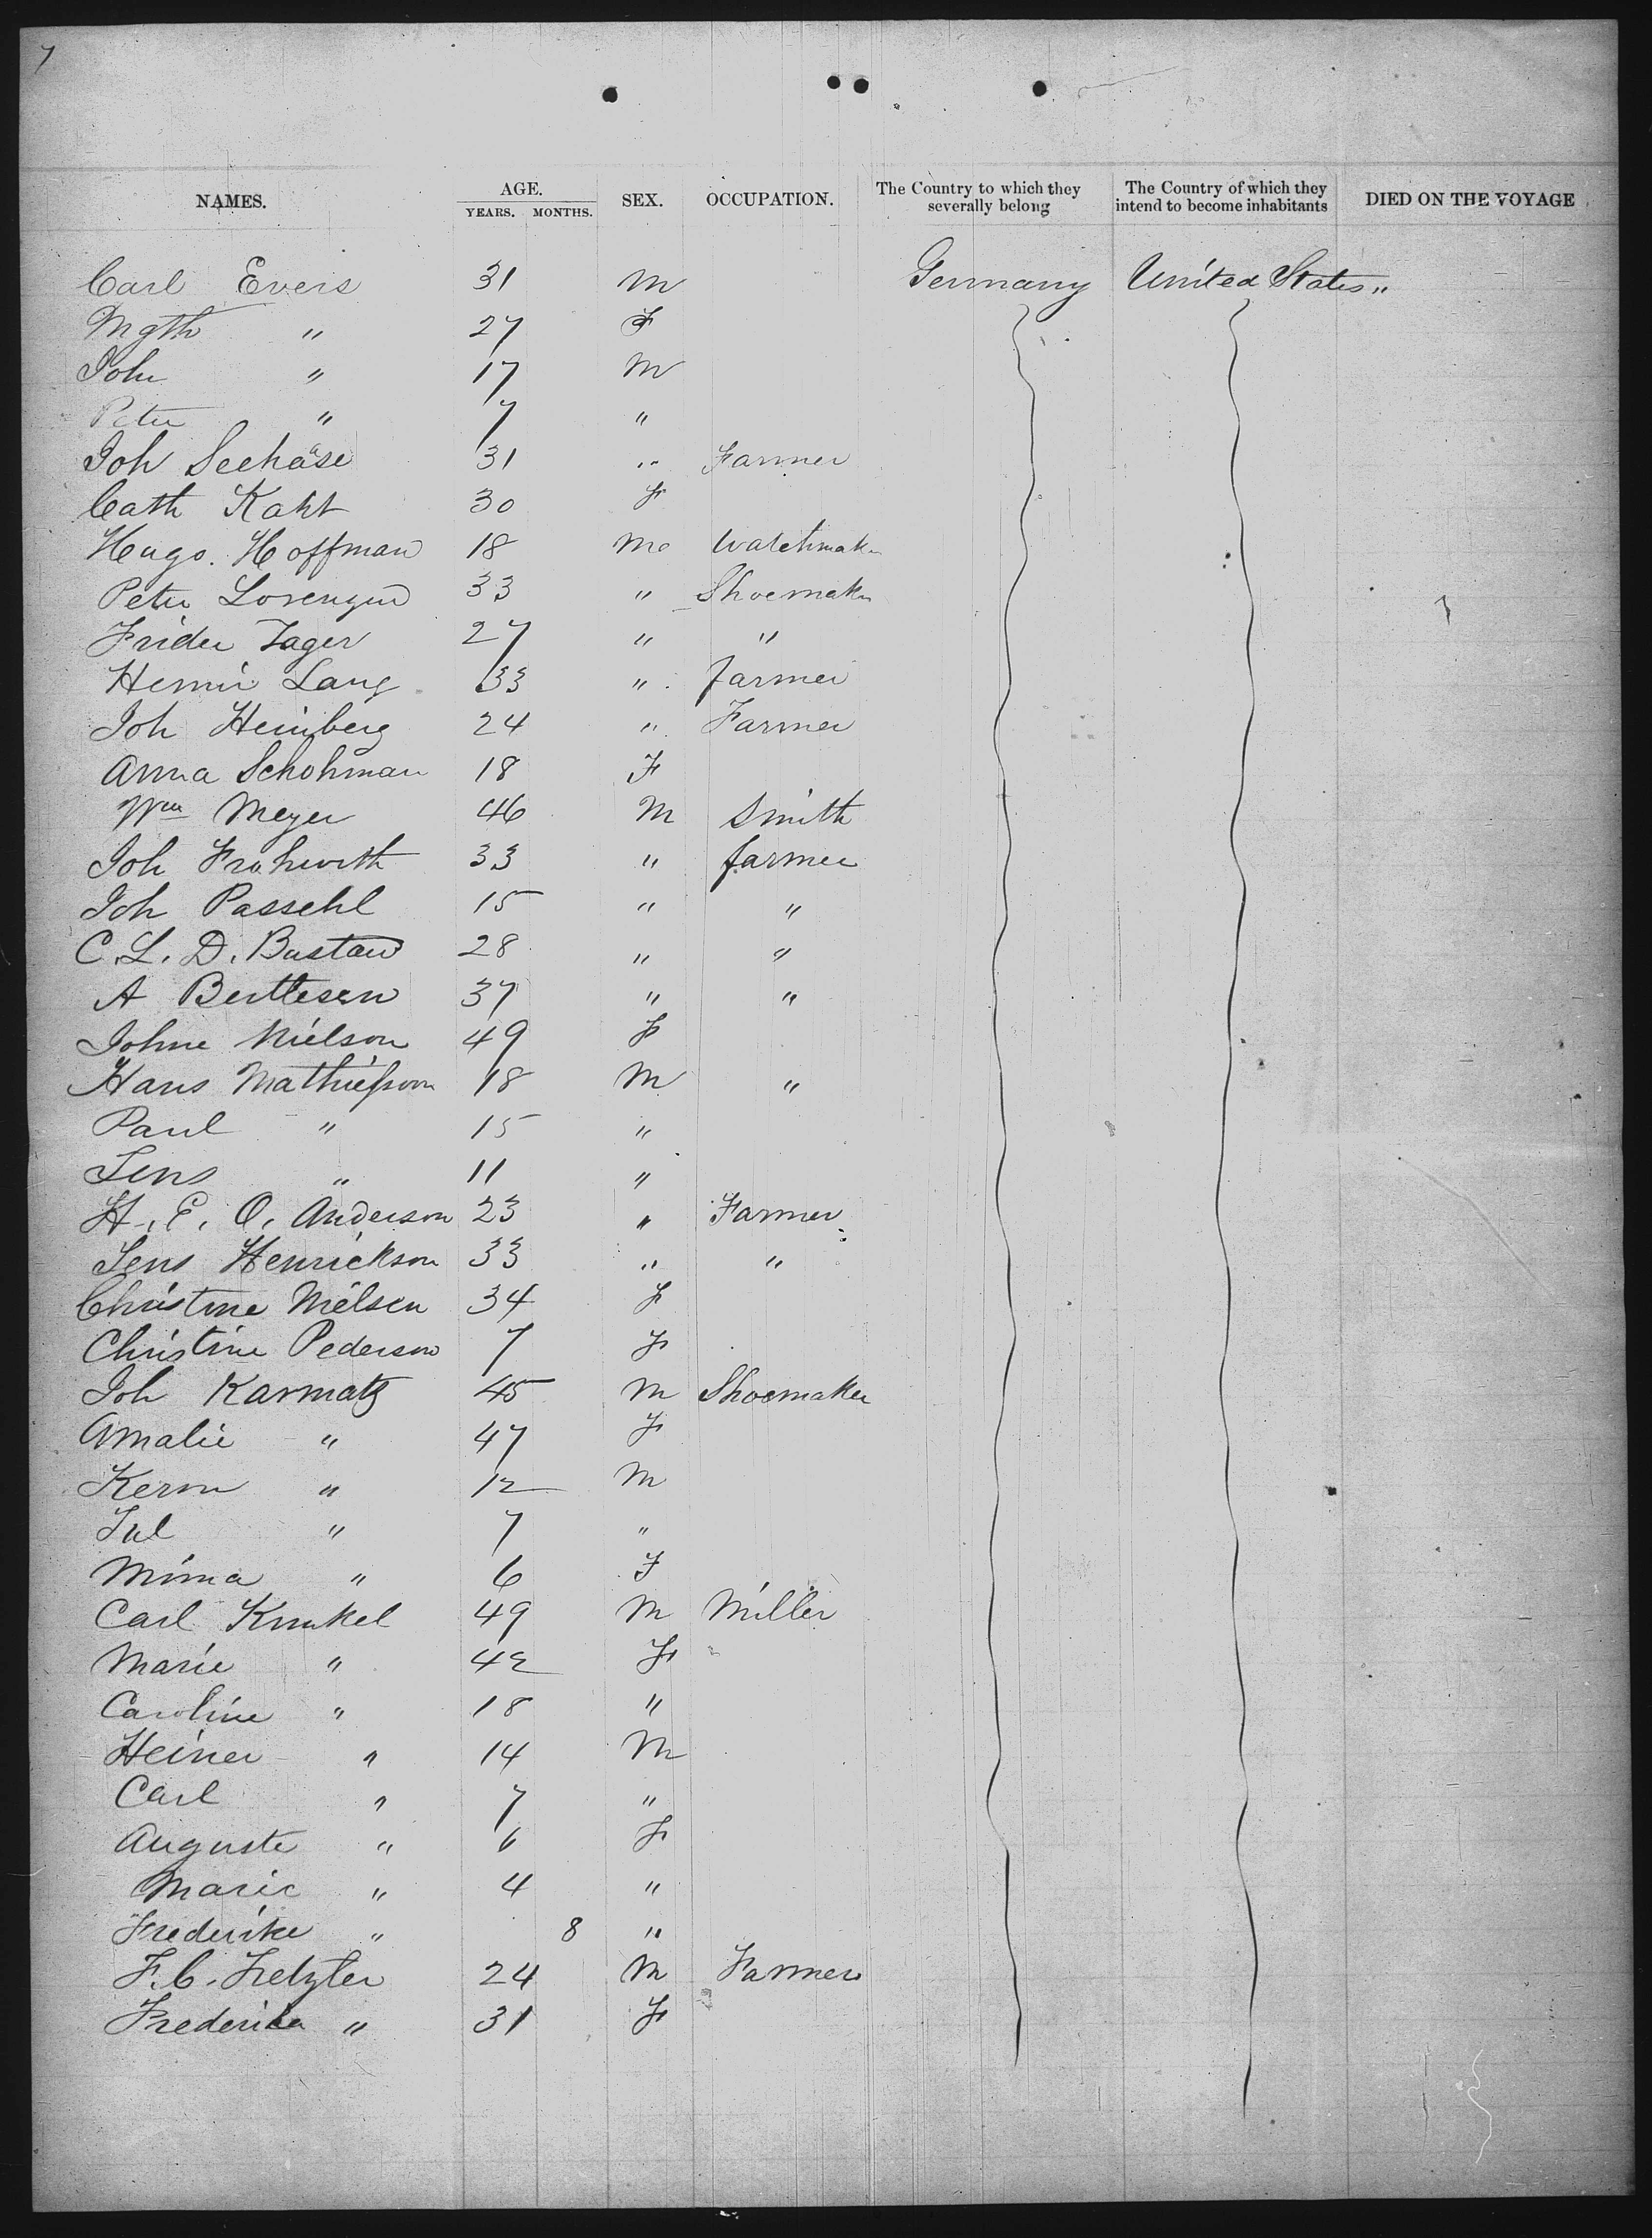 7
NAMES. AGE. YEARS. MONTHS. SEX. OCCUPATION. The Country to which they severally belong The Country of which they intend to become inhabitants DIED ON THE VOYAGE
Carl Evers 31 M Germany United States "
Mgth " 27 F
Joh " 17 M
Peter " 7 "
Joh Seehase 31 " Farmer
Cath Kaht 30 F
Hugo. Hoffman 18 M Watchmak
Peter 33 " Shoemak
Frider Jager 27 " "
Henri Lang 33 " farmer
Joh Heinberg 24 " Farmer
Anna Schohman 18 F
Wm Meyer 46 M Smith
Joh Frohwirth 33 " farmer
Joh Passehl 15 " "
C. L. D. Bustau 28 " "
A Bertlesen 37 " "
Johne Nielson 49 F
Hans Mathiesson 18 M "
Paul " 15 "
Jens " 11 "
H. E. O. Anderson 23 " Farmer
Jens Henrickson 33 " "
Christine Nielsen 34 F
Christine Pederson 7 F
Joh Karmatz 45 M Shoemaker
Amalie " 47 F
" 12 M
Jul " 7 "
Mima " 6 F
Carl Kunkel 49 M Miller
Marie " 42 F
Caroline " 18 "
Heiner " 14 M
Carl " 7 "
Auguste " 6 F
Marie " 4 "
Frederike " 8 "
F. C. 24 M Farmer
Frederika " 31 F